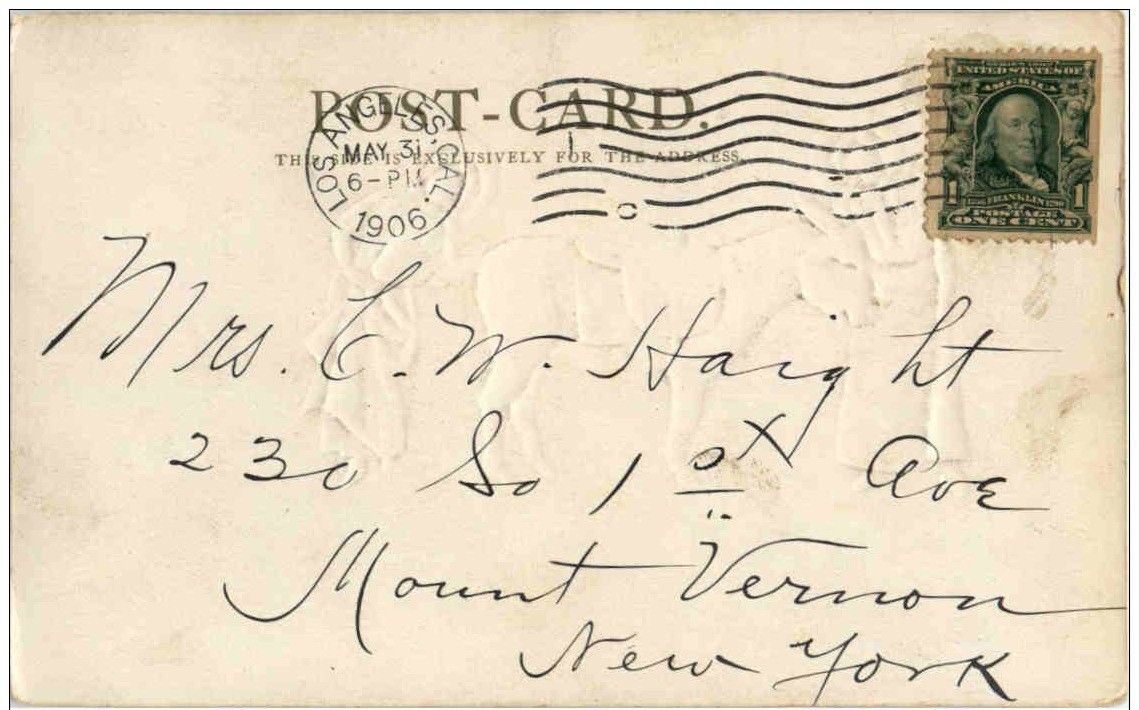 POST-CARD.
THIS SIDE IS EXCLUSIVELY FOR THE ADDRESS.
LOS ANGELES, CAL.
MAY 31
6-PM
1906
1
UNITED STATES OF
AMERICA
FRANKLIN
POSTAGE
1 ONE CENT 1
Mrs. C. W. Haight
230 So 1st Ave
Mount Vernon
New York